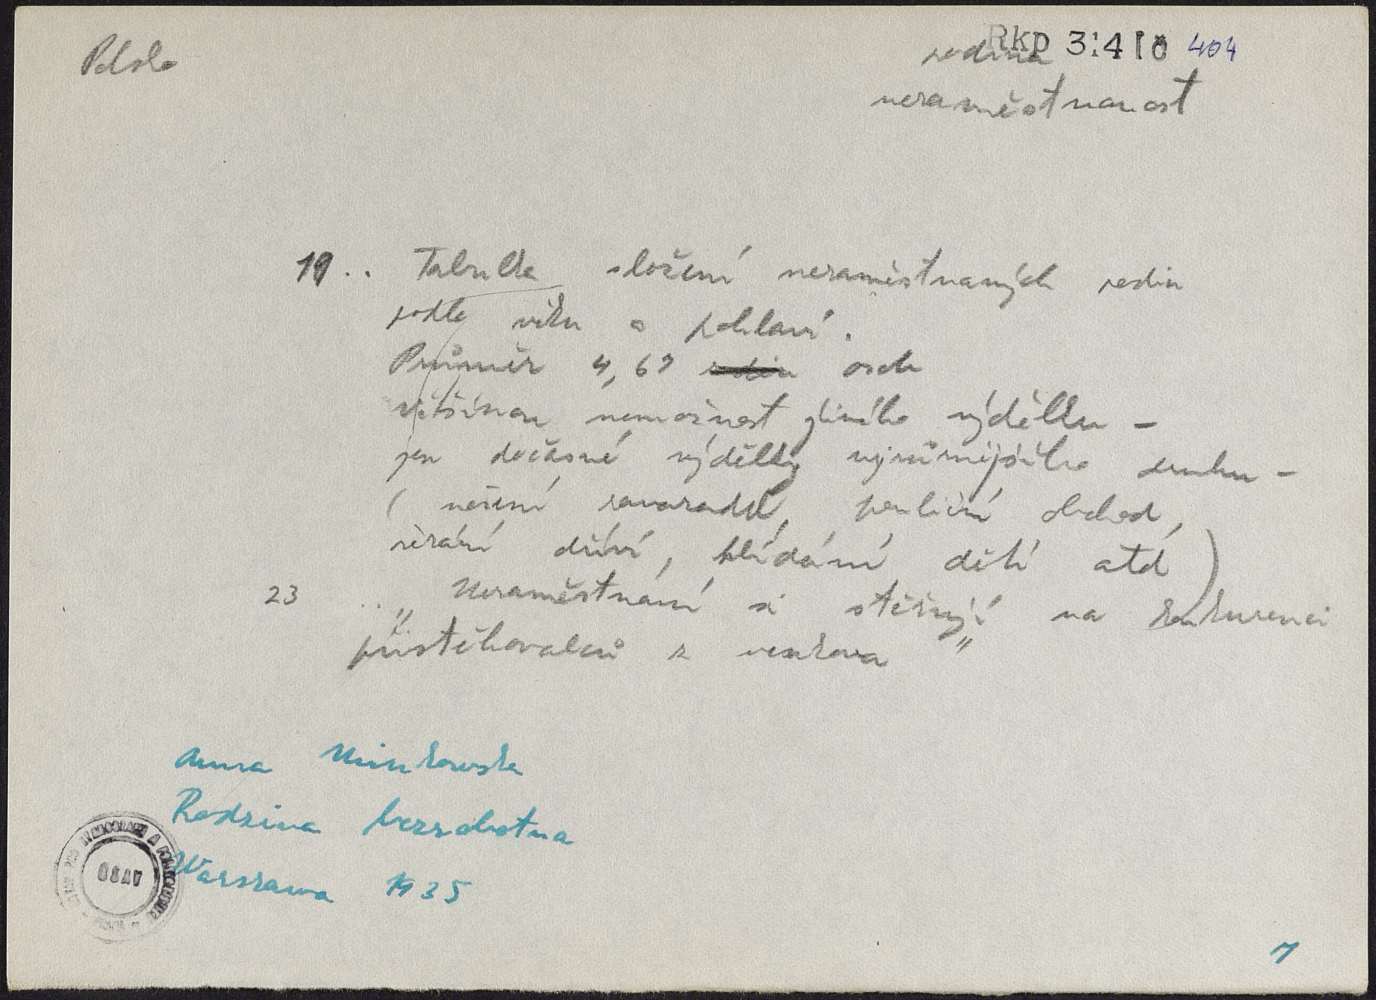 Polsko
Rkp 3410 404
rodina
nezaměstnanost
19.. Tabulka složení nezaměstnaných rodin
podle věku a pohlaví.
Průměr 4,67 rodin osob
většinou nemožnost jiného výdělku -
jen dočasné výdělky druhu -
( nošení zavazadel, pouliční obchod,
řezání dříví, hlídání dětí atd )
23 .. „ Nezaměstnaní si stěžují na konkurenci
přistěhovalců z venkova "
Anna Minkowska
Rodzina bezrobotna
Warszawa 1935
ČSAV
7